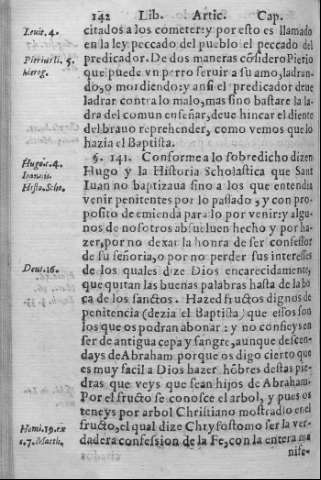 142 Lib. Artic. Cap.
Leuit. 4.
citados a los cometer: y por esto es llamado
en la ley peccado del pueblo el peccado del
Pieriusli. 5.
predicador. De dos maneras cõsidero Pierio
hierog.
que puede vn perro seruir a su amo, ladran-
do, o mordiendo: y ansi el predicador deue
ladrar contra lo malo, mas sino bastare la la-
dra del comun enseñar, deue hincar el diente
del brauo reprehender, como vemos que lo
hazia el Baptista.
§. 141. Conforme a lo sobredicho dizen
Hugo. c. 4.
Hugo y la Historia Scholastica que Sant
Ioannis.
Iuan no baptizaua sino a los que entendia
Histo. Scho.
venir penitentes por lo passado, y con pro-
posito de emienda para lo por venir: y algu-
nos de nosotros absueluen hecho y por ha-
zer, por no dexar la honra de ser confessor
de su señoria, o por no perder sus interesses
Deut. 16.
de los quales dize Dios encarecidamente,
que quitan las buenas palabras hasta de la bo
ca de los sanctos. Hazed fructos dignos de
penitencia (dezia el Baptista) que essos son
los que os podran abonar: y no confieys en
ser de antigua cepa y sangre, aunque descen-
days de Abraham, porque os digo cierto que
es muy facil a Dios hazer hõbres destas pie-
dras que veys que sean hijos de Abraham.
Por el fructo se conosce el arbol, y pues os
teneys por arbol Christiano mostradlo en el
Homi. 19. ex
fructo, el qual dize Chrysostomo ser la ver-
dadera confession de la Fe, con la entera ma
nife-